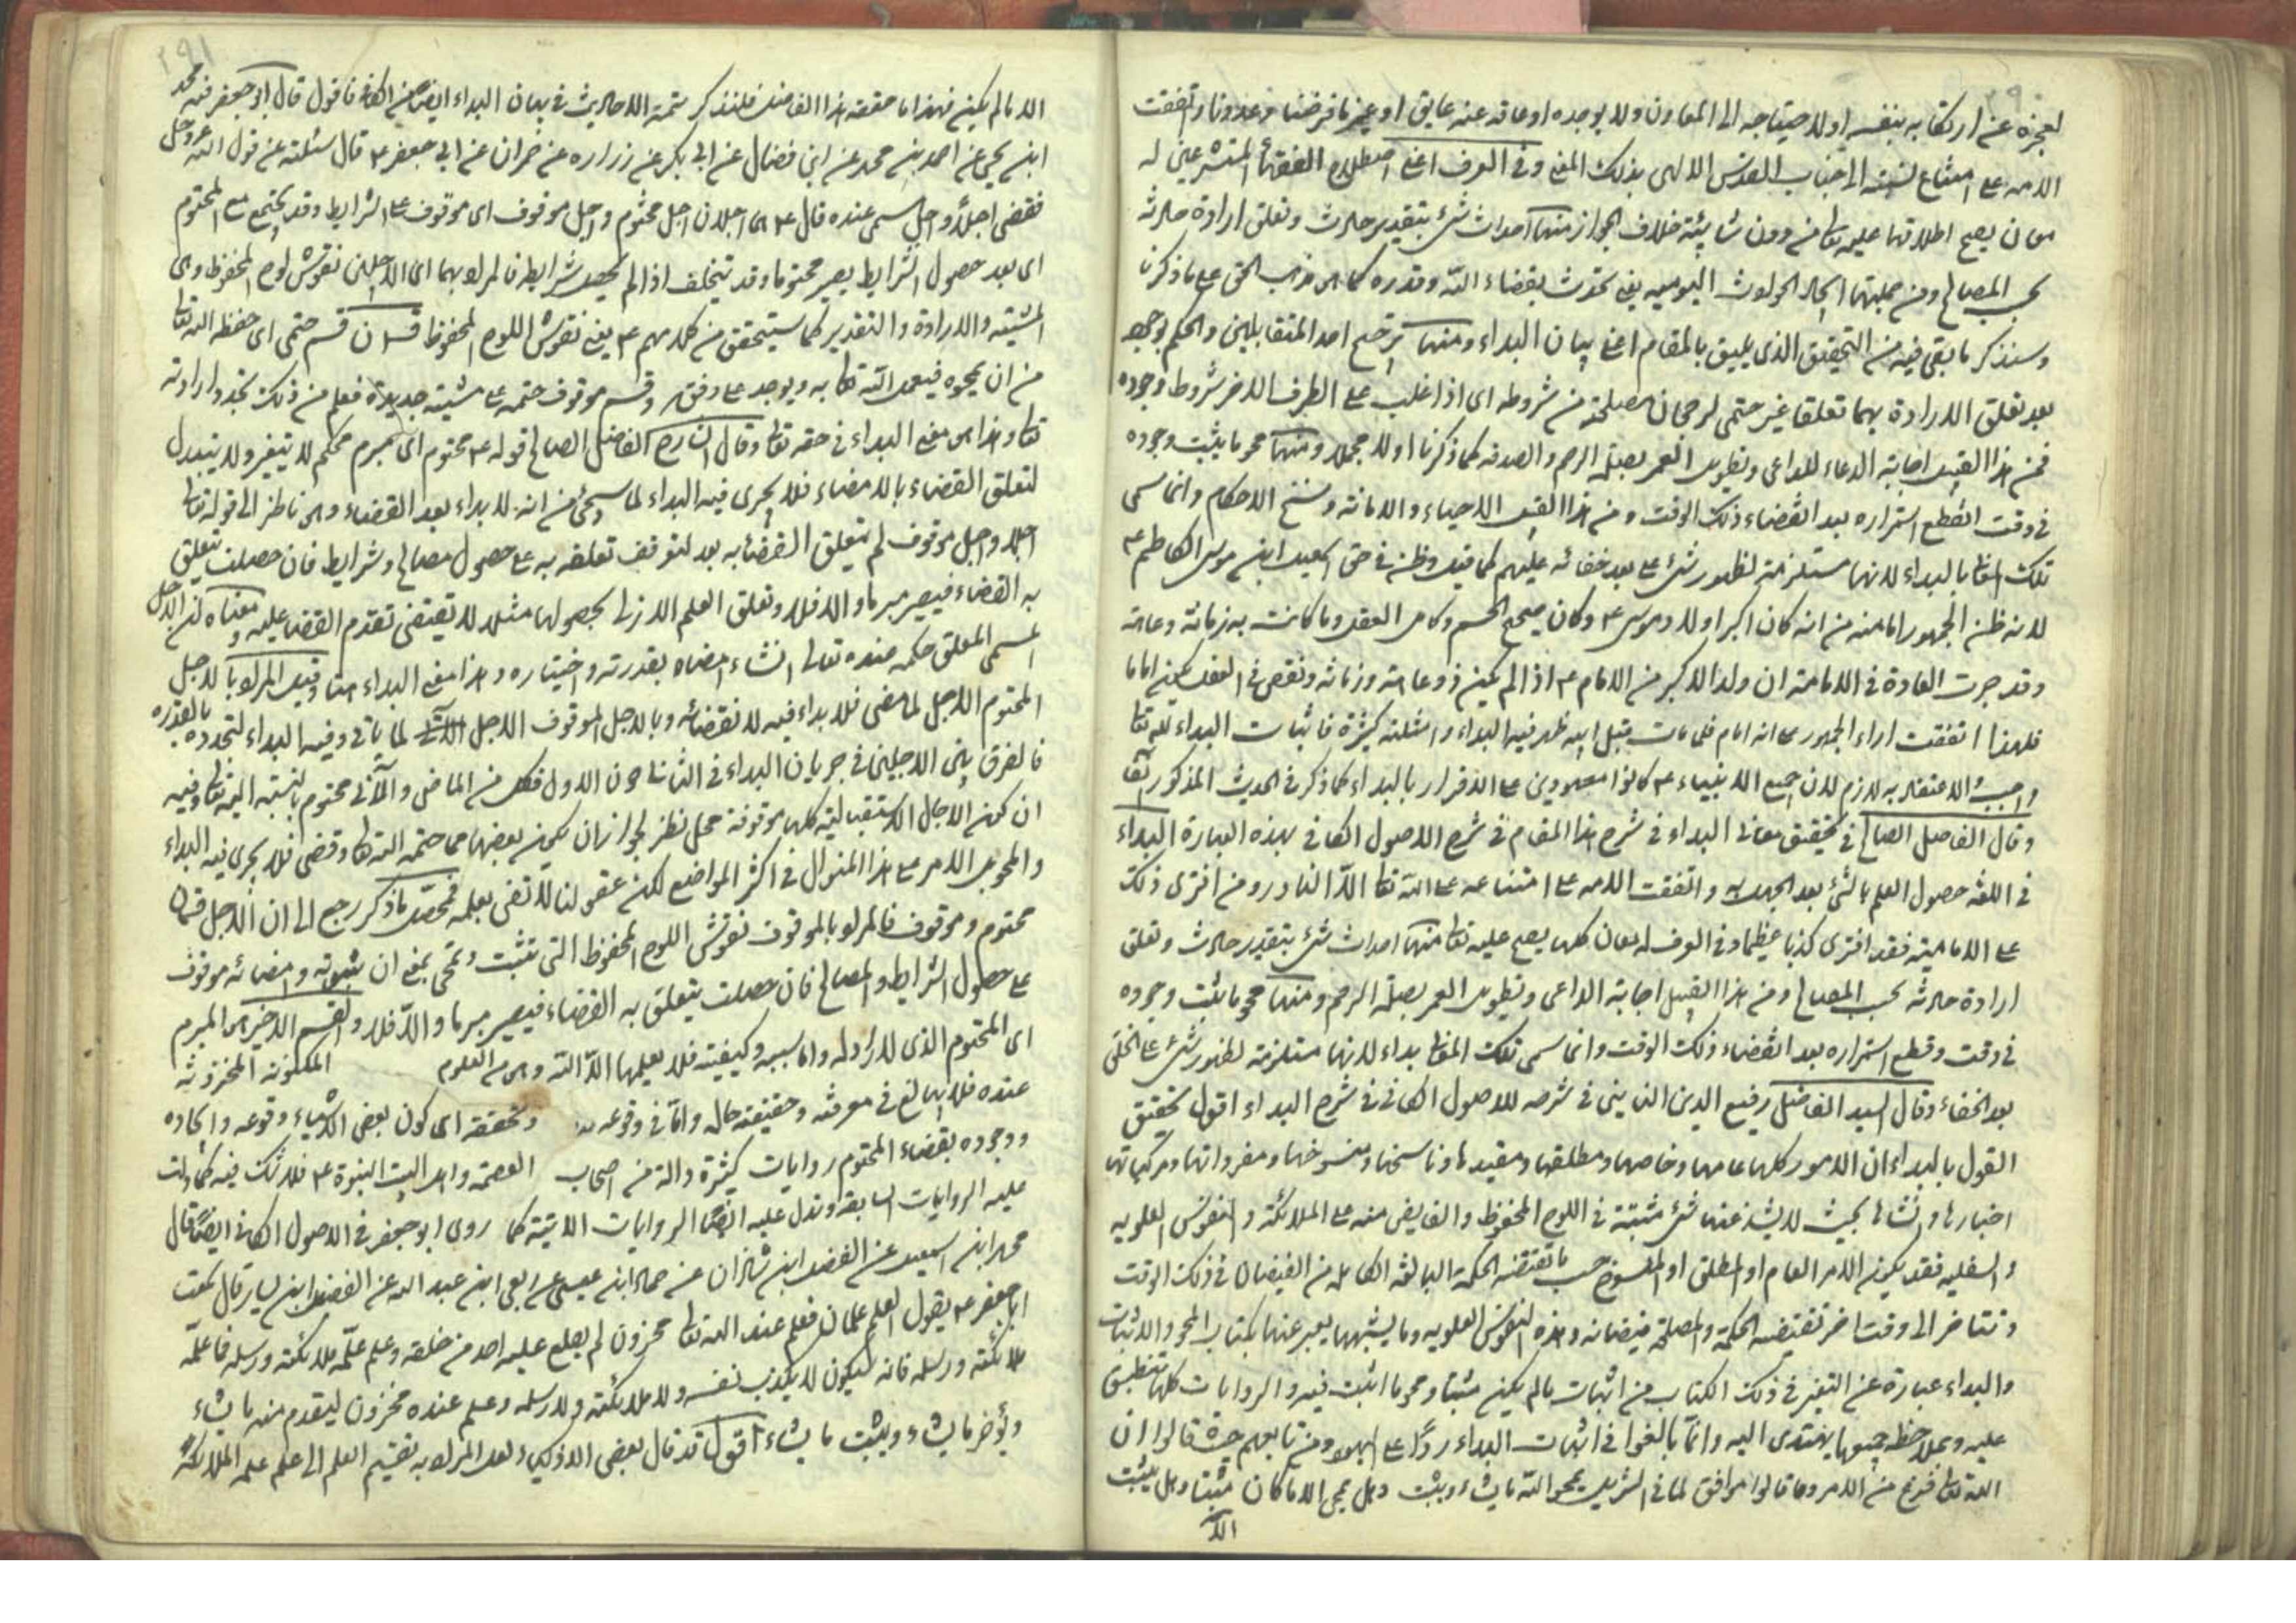 ٢٩٠
لعجزه عن ارتكابه بنفسه او لاحتياجه الى المعاون ولا يوجده او عاقه عنه عايق او غير ما فرضنا وعددنا واتفقت
الامه على امتناع نسبته الى جناب القدس الالهى بذلك المعنى وفى العرف اعنى اصطلاح الفقهاء المتشرعين له
معان يصح اطلاقها عليه تعالى من دون شائبة خلاف الجواز منها احداث شئ بتقدير حادث وتعلق ارادة حادثه
بحسب المصالح ومن جملتها ايجاد الحوادث اليوميه يعنى تحدث بقضاء الله وقدره كما هى مذهب الحق على ما ذكرنا
وسنذكر ما بقى فيه من التحقيق الذى يليق بالمقام اعنى بيان البداء ومنها ترجيح احد المتقابلين والحكم بوجوده
بعد تعلق الارادة بهما تعلقا غير حتمى لرجحان مصلحته من شروطه اى اذا غلب على الطرف الاخر شروط وجوده
فمن هذا القبيل اجابة الدعاء للداعى وتطويل العمر بصلة الرحم والصدقه كما ذكرنا اولا مجملا ومنها محو ما يثبت وجوده
فى وقت انقطع استمراره بعد انقضاء ذلك الوقت ومن هذا القبيل الاحياء والاماتة ونسخ الاحكام وانما سمى
تلك المعانى بالبداء لانها مستلزمة لظهور شئ على بعد خفائه عليهم كما قيل وظن فى حق اسمعيل ابن موسى الكاظم ع
لانه ظن الجمهور امامته من انه كان اكبر اولاد موسى ع وكان صحيح الجسم وكامل العقل وما كانت به زمانة وعاهة
وقد جرت العادة فى الامامة ان ولد الاكبر من الامام ع اذا لم يكن ذو عاهة وزمانة ونقص فى العقل يكون اماما
فلهذا اتفقت اراء الجمهور على انه امام فلما مات قبل ابيه ظهر فيه البداء وامثلته كثيرة فاثبات البداء لله تعالى
واجب والاعتقاد به لازم لان جميع الانبياء ع كانوا معهودين على الاقرار بالبداء كما ذكر فى الحديث المذكور آنفا
وقال الفاضل الصالح فى تحقيق معانى البداء فى شرح هذا المقام فى شرح الاصول الكافى بهذه العبارة البداء
فى اللغه حصول العلم بالشئ بعد الجهل به واتفقت الامه على امتناعه على الله تعالى الا النادر ومن افترى ذلك
على الاماميه فقد افترى كذبا عظيما وفى العرف له معان كلها يصح عليه تعالى منها احداث شئ بتقدير حادث وتعلق
ارادة حادثه بحسب المصالح ومن هذا القبيل اجابة الداعى وتطويل العمر بصلة الرحم ومنها محو ما يثبت وجوده
فى وقت وقطع استمراره بعد انقضاء ذلك الوقت وانما سمى تلك المعانى بداء لانها مستلزمة لظهور شئ على الخلق
بعد الخفاء وقال السيد الفاضل رفيع الدين النائينى فى شرحه للاصول الكافى فى شرح البداء اقول تحقيق
القول بالبداء ان الامور كلها عامها وخاصها ومطلقها ومقيدها وناسخها ومنسوخها ومفرداتها ومركباتها
اخبارها وانشائها بحيث لا يشذ عنها شئ مثبتة فى اللوح المحفوظ والفايض منه على الملائكة والنفوس العلويه
والسفليه فقد يكون الامر العام او المطلق او المنسوخ حسب ما تقتضيه الحكمة البالغة الكامله من الفيضان فى ذلك الوقت
وتتاخر الى وقت اخر تقتضيه الحكمة والمصلحة فيضانه وهذه النفوس العلويه وما يشبهها يعبر عنها بكتاب المحو والاثبات
والبداء عبارة عن التغير فى ذلك الكتاب من اثبات ما لم يكن مثبتا ومحو ما اثبت فيه والروايات كلها تنطبق
عليه وبملاحظة جميعها يهتدى اليه وانما بالغوا فى اثبات البداء ردا على اليهود ومن تابعهم حيث قالوا ان
الله تعالى فرغ من الامر وما قالوا موافق لما فى التنزيل يمحو الله ما يشاء ويثبت وهل يمحى الا ما كان مثبتا وهل يثبت
الا
٢٩١
الا ما لم يكن فهذا ما حققه هذا الفاضل فلنذكر تتمة الاحاديث فى بيان البداء ايضا من الكافى فاقول قال ابو جعفر فيه محمد
ابن يحيى عن احمد بن محمد عن ابن فضال عن ابن بكير عن زراره عن حمران عن ابى جعفر ع قال سئلته عن قول الله عز وجل
فقضى اجلا واجل مسمى عنده قال ع هما اجلان اجل محتوم واجل موقوف اى موقوف على الشرايط وقد يجتمع مع المحتوم
اى بعد حصول الشرايط يصير محتوما وقد تتخلف اذا لم يحصل شرايط فالمراد بهما اى الاجلين نقوش لوح المحفوظ وهى
المشيته والارادة والتقدير كما ستتحقق من كلامهم ع يعنى نقوش اللوح المحفوظ قسمان قسم حتمى اى حفظه الله تعالى
من ان يمحوه فيعمل الله تعالى به ويوجد على وفقه وقسم موقوف حتمه على مشيته جديدة فعلم من ذلك تجدد ارادته
تعالى وهذا هى معنى البداء فى حقه تعالى وقال الشارح الفاضل الصالح قوله ع محتوم اى مبرم محكم لا يتغير ولا يتبدل
لتعلق القضاء بالامضاء فلا يجرى فيه البداء لما سيجئ من انه لا بداء بعد القضاء وهى ناظر الى قوله تعالى
اجلا واجل موقوف لم يتعلق القضاء به بعد لتوقف تعلقه به على حصول مصالح وشرايط فان حصلت يتعلق
به القضاء فيصير مبرما والا فلا وتعلق العلم الازلى بحصولها مثلا لا تقتضى تقدم القضا عليه ومعناه ان الاجل
المسمى المعلق حكمه عنده تعالى انشاء امضاه بقدرته واختياره وهذا معنى البداء هنا وقيل المراد بالاجل
المحتوم الاجل لما مضى فلا بداء فيه لانقضائه وبالاجل الموقوف الاجل الآتى لما ياتى وفيه البداء لتجدده بالقدره
فالفرق بين الاجلين فى جريان البداء فى الثانى دون الاول فكل من الماضى والآتى محتوم بالنسبة اليه تعالى وفيه
ان كون الاجال الاستقباليه كلها موقوفة محل نظر لجواز ان يكون بعضها مما حتمه الله تعالى وقضى فلا يجرى فيه البداء
والمحوى الامر على هذا المنوال فى اكثر المواضع لكن عقولنا لا تفى بعلمه فمحصل ما ذكر رجع الى ان الاجل قسمان
محتوم وموقوف فالمراد بالموقوف نقوش اللوح المحفوظ التى تثبت وتمحى بمعنى ان ثبوته وامضائه موقوف
على حصول الشرايط والمصالح فان حصلت يتعلق به القضاء فيصير مبرما والا فلا والقسم الاخير هى المبرم
اى المحتوم الذى لا راد له واما سببه وكيفيته فلا يعلمها الا الله وهى من العلوم المكنونة المخزونة
عنده فلا يبالغ فى معرفته وحقيقته حاله واما فى وقوعه وتحققه اى كون بعض الاشياء وقوعه وايجاده
ووجوده بقضاء المحتوم روايات كثيرة دالة من اصحاب العصمه واهل البيت النبوة ع فلا شك فيه كما دلت
عليه الروايات السابقه وتدل عليه ايضا الروايات الاتية كما روى ابو جعفر فى الاصول الكافى ايضا قال
محمد ابن اسمعيل عن الفضل ابن شاذان عن حماد ابن عيسى عن ربعى ابن عبد الله عن الفضيل ابن يسار قال سمعت
ابا جعفر ع يقول العلم علمان فعلم عند الله تعالى مخزون لم يطلع عليه احد من خلقه وعلم علمه ملائكته ورسله فما علمه
ملائكته ورسله فانه سيكون لا يكذب نفسه ولا ملائكته ولا رسله وعلم عنده مخزون ليقدم منه ما يشاء
ويؤخر ما يشاء ويثبت ما يشاء اقول قد قال بعض الاذكياء لعل المراد به تقسيم العلم الى علم علمه الملائكة